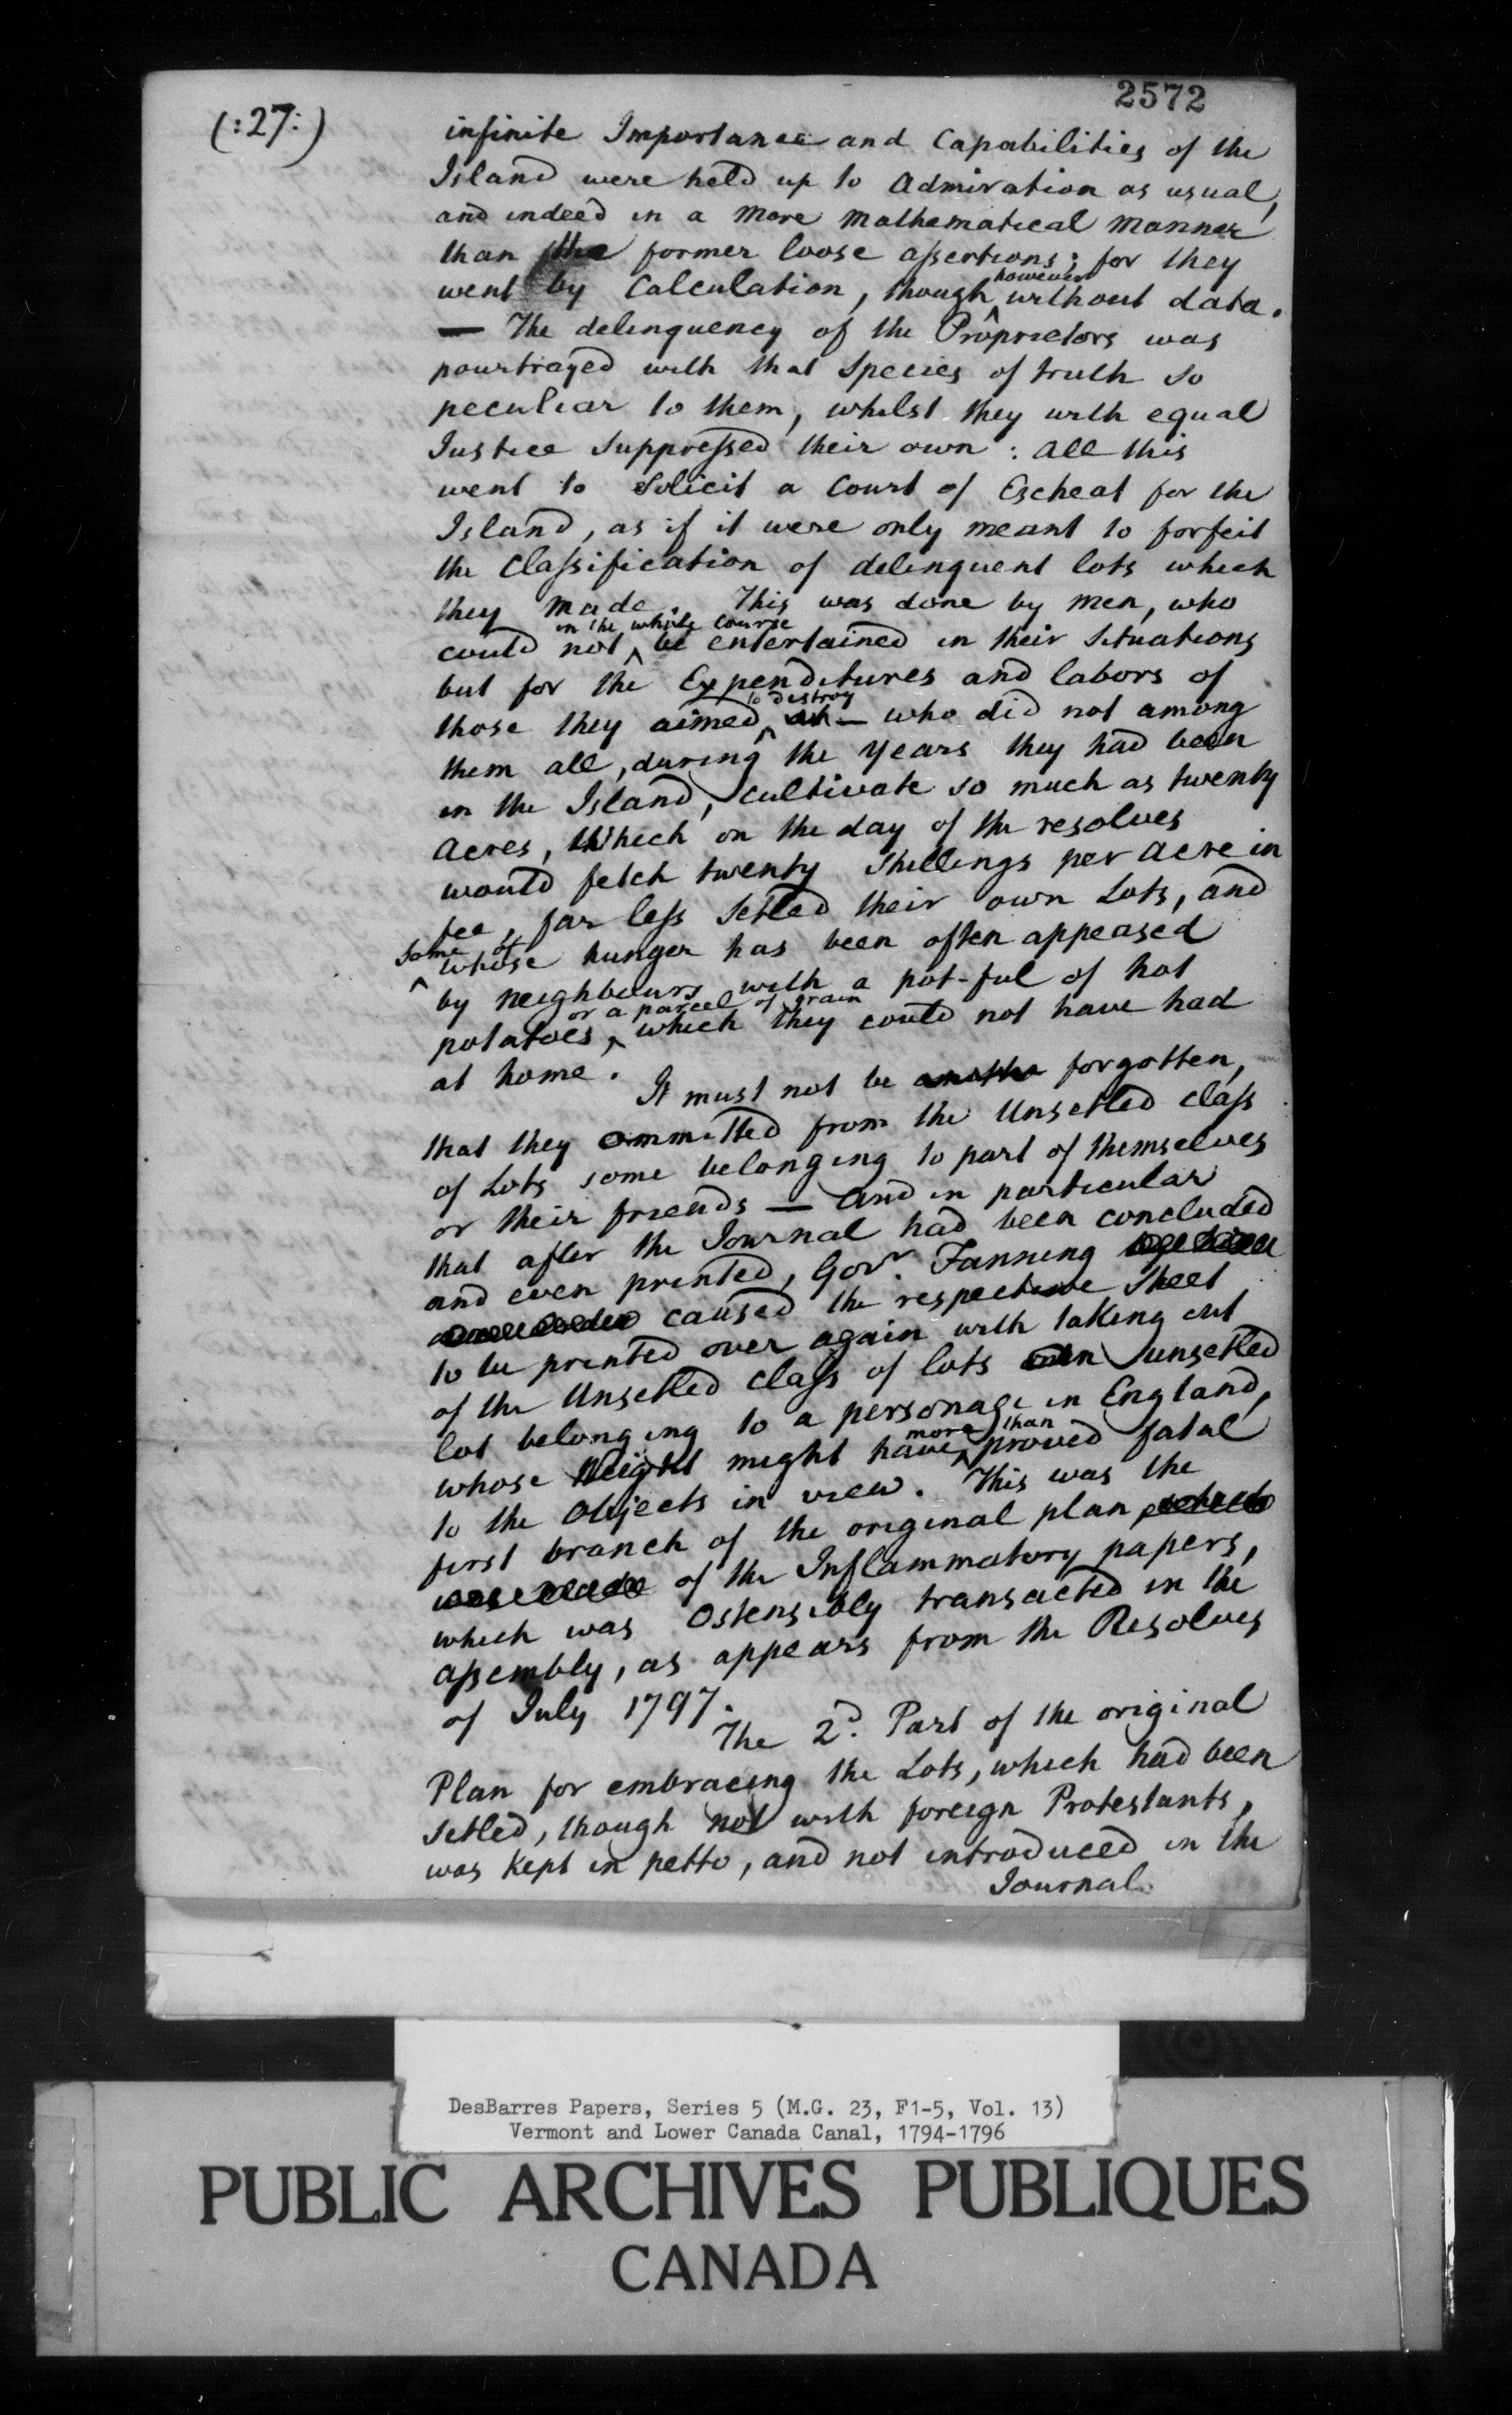 2572
(:27:)
infinite Importance and Capabilities of the
Island were held up to Admiration as usual,
and indeed in a more mathematical manner
than the former loose assertions; for they
went by Calculation, though however without data.
— The delinquency of the Proprietors was
pourtrayed with that Species of truth so
peculiar to them, whilst they with equal
Justice suppressed their own: all this
went to solicit a Court of Escheat for the
Island, as if it were only meant to forfeit
the Classification of delinquent lots which
they made. This was done by men, who
could not in the whole course be entertained in their Situations
but for the Expenditures and labors of
those they aimed to destroy at — who did not among
them all, during the years they had been
in the Island, cultivate so much as twenty
Acres, Which on the day of the resolves
would fetch twenty Shillings per Acre in
fee, far less setled their own Lots, and
some of whose hunger has been often appeased
by neighbours with a pot-ful of hot
potatoes, or a parcel of grain which they could not have had
at home.
It must not be forgotten,
that they ommitted from the Unsetled Class
of Lots some belonging to part of themselves
or their friends — and in particular
that after the Journal had been concluded
and even printed, Govr. Fanning
caused the respective Sheet
to be printed over again with taking out
of the Unsetled Class of lots an unsetled
lot belonging to a personage in England,
whose Weight might have more than proved fatal
to the Objects in view. This was the
first branch of the original plan which
was made of the Inflammatory papers,
which was Ostensibly transacted in the
assembly, as appears from the Resolves
of July 1797.
The 2d. Part of the original
Plan for embracing the Lots, which had been
setled, though not with foreign Protestants,
was Kept in petto, and not introduced in the
Journal
DesBarres Papers, Series 5 (M.G. 23, F1-5, Vol. 13)
Vermont and Lower Canada Canal, 1794-1796
PUBLIC ARCHIVES PUBLIQUES
CANADA